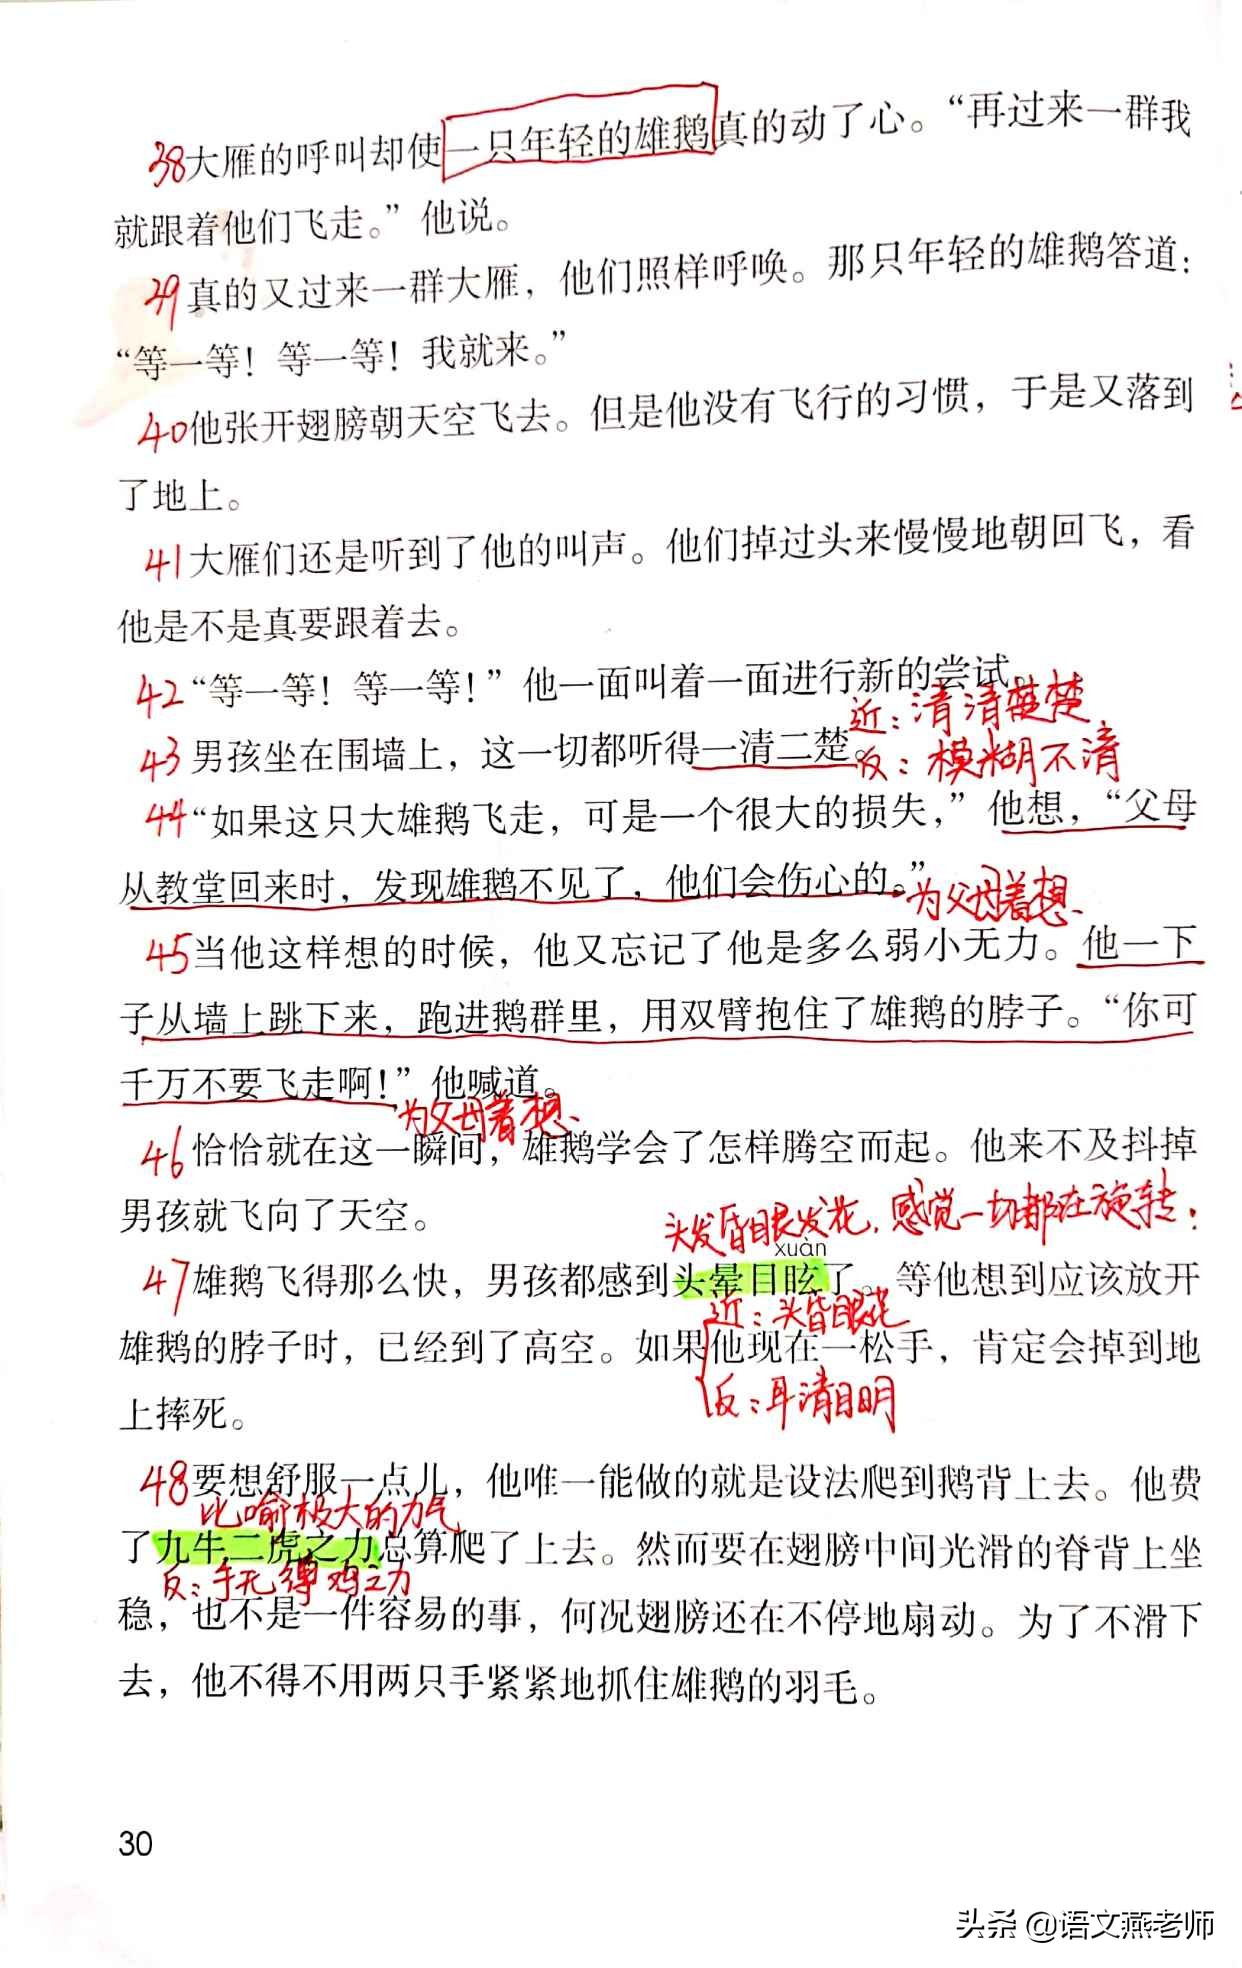 38大雁的呼叫却使一只年轻的雄鹅真的动了心。“再过来一群我
就跟着他们飞走。”他说。
39真的又过来一群大雁，他们照样呼唤。那只年轻的雄鹅答道：
“等一等！等一等！我就来。”
40他张开翅膀朝天空飞去。但是他没有飞行的习惯，于是又落到
了地上。
41大雁们还是听到了他的叫声。他们掉过头来慢慢地朝回飞，看
他是不是真要跟着去。
42“等一等！等一等！”他一面叫着一面进行新的尝试。
近：清清楚楚
43男孩坐在围墙上，这一切都听得一清二楚。
反：模糊不清
44“如果这只大雄鹅飞走，可是一个很大的损失，”他想，“父母
从教堂回来时，发现雄鹅不见了，他们会伤心的。”
为父母着想、
45当他这样想的时候，他又忘记了他是多么弱小无力。他一下
子从墙上跳下来，跑进鹅群里，用双臂抱住了雄鹅的脖子。“你可
千万不要飞走啊！”他喊道。
为父母着想、
46恰恰就在这一瞬间，雄鹅学会了怎样腾空而起。他来不及抖掉
男孩就飞向了天空。
头发昏眼发花，感觉一切都在旋转.
xuàn
47雄鹅飞得那么快，男孩都感到头晕目眩了。等他想到应该放开
近：头昏眼花
雄鹅的脖子时，已经到了高空。如果他现在一松手，肯定会掉到地
反：耳清目明
上摔死。
48要想舒服一点儿，他唯一能做的就是设法爬到鹅背上去。他费
比喻极大的力气
了九牛二虎之力总算爬了上去。然而要在翅膀中间光滑的脊背上坐
反：手无缚鸡之力
稳，也不是一件容易的事，何况翅膀还在不停地扇动。为了不滑下
去，他不得不用两只手紧紧地抓住雄鹅的羽毛。
30
头条 @语文燕老师